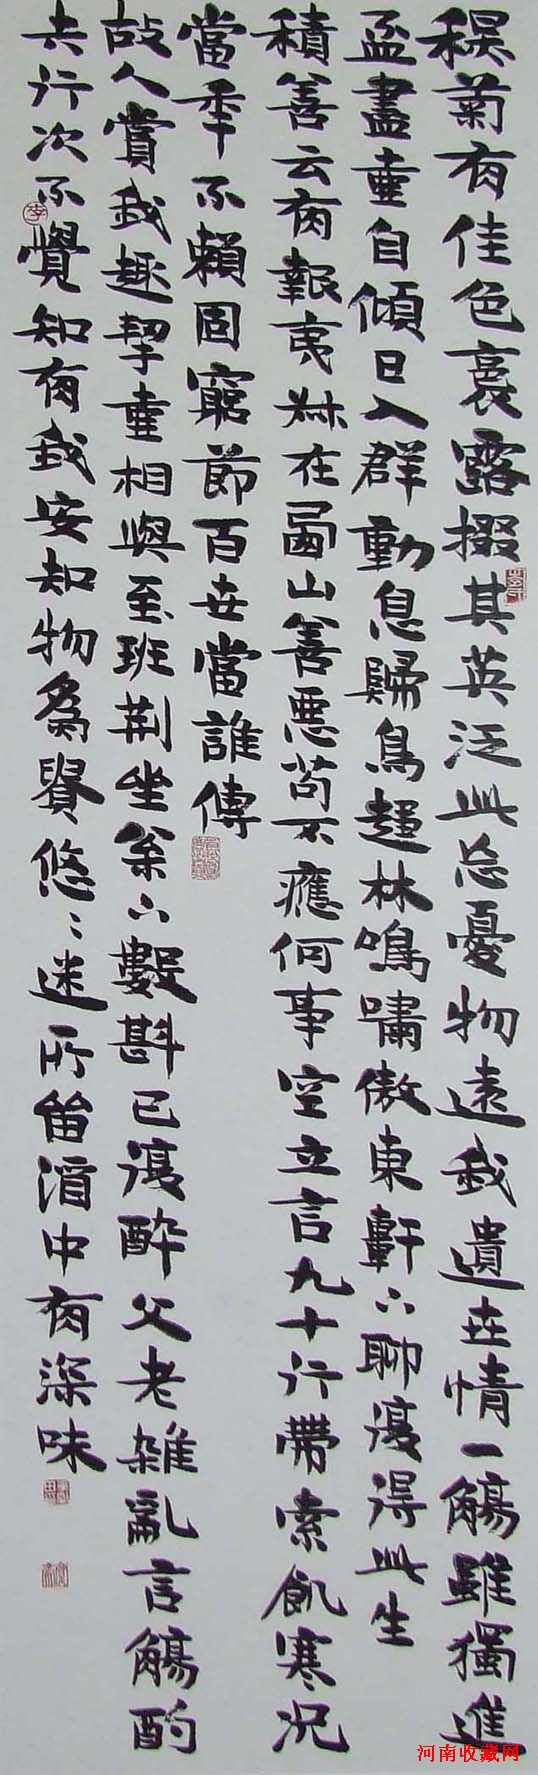 秋菊有佳色裛露掇其英泛此忘憂物遠我遺世情一觴雖獨進
盃盡壺自傾日入群動息歸鳥趨林鳴嘯傲東軒下聊復得此生
積善云有報夷叔在西山善惡苟不應何事空立言九十行帶索飢寒況
當年不賴固窮節百世當誰傳
故人賞我趣挈壺相與至班荊坐松下數斟已復醉父老雜亂言觴酌
失行次不覺知有我安知物為貴悠〻迷所留酒中有深味
河南收藏网